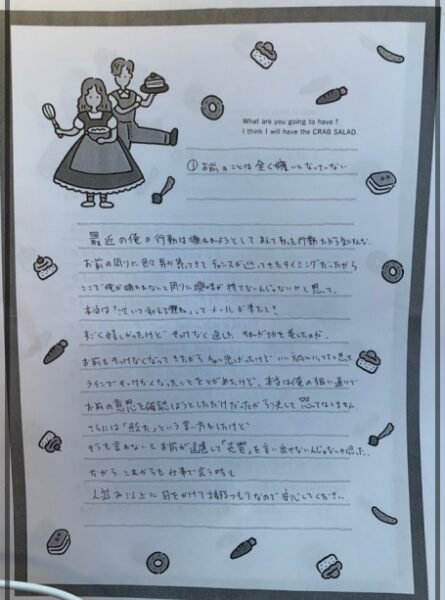 What are you going to have ?
I think I will have the CRAB SALAD.
①お前のことは全く嫌いになっていない
最近の俺の行動は嫌われようとしてあえてやった行動だから気にすんな。
お前の周りに色々男が来てチャンスがきたタイミングだったから
ここで俺が嫌われないと周りに興味が持てないんじゃないかと思って、
本当は「次いつ私とご飯ね」ってメールが来たとき
すごく嬉しかったけどそっけなく返した
お前もそっけなくなってきたから
ラインでそっけなくなったことをとがめたけど、本当は俺の狙い通りで
お前の意思を確認しようとしただけだったから決して怒ってはいません
さらには「飽きた」という言い方もしたけど
そう言わないとお前が遠慮して「」を言い出せないんじゃないか思った。
だからこれからも仕事で会う時も
人並み以上に目をかけて接するつもりなので安心してください